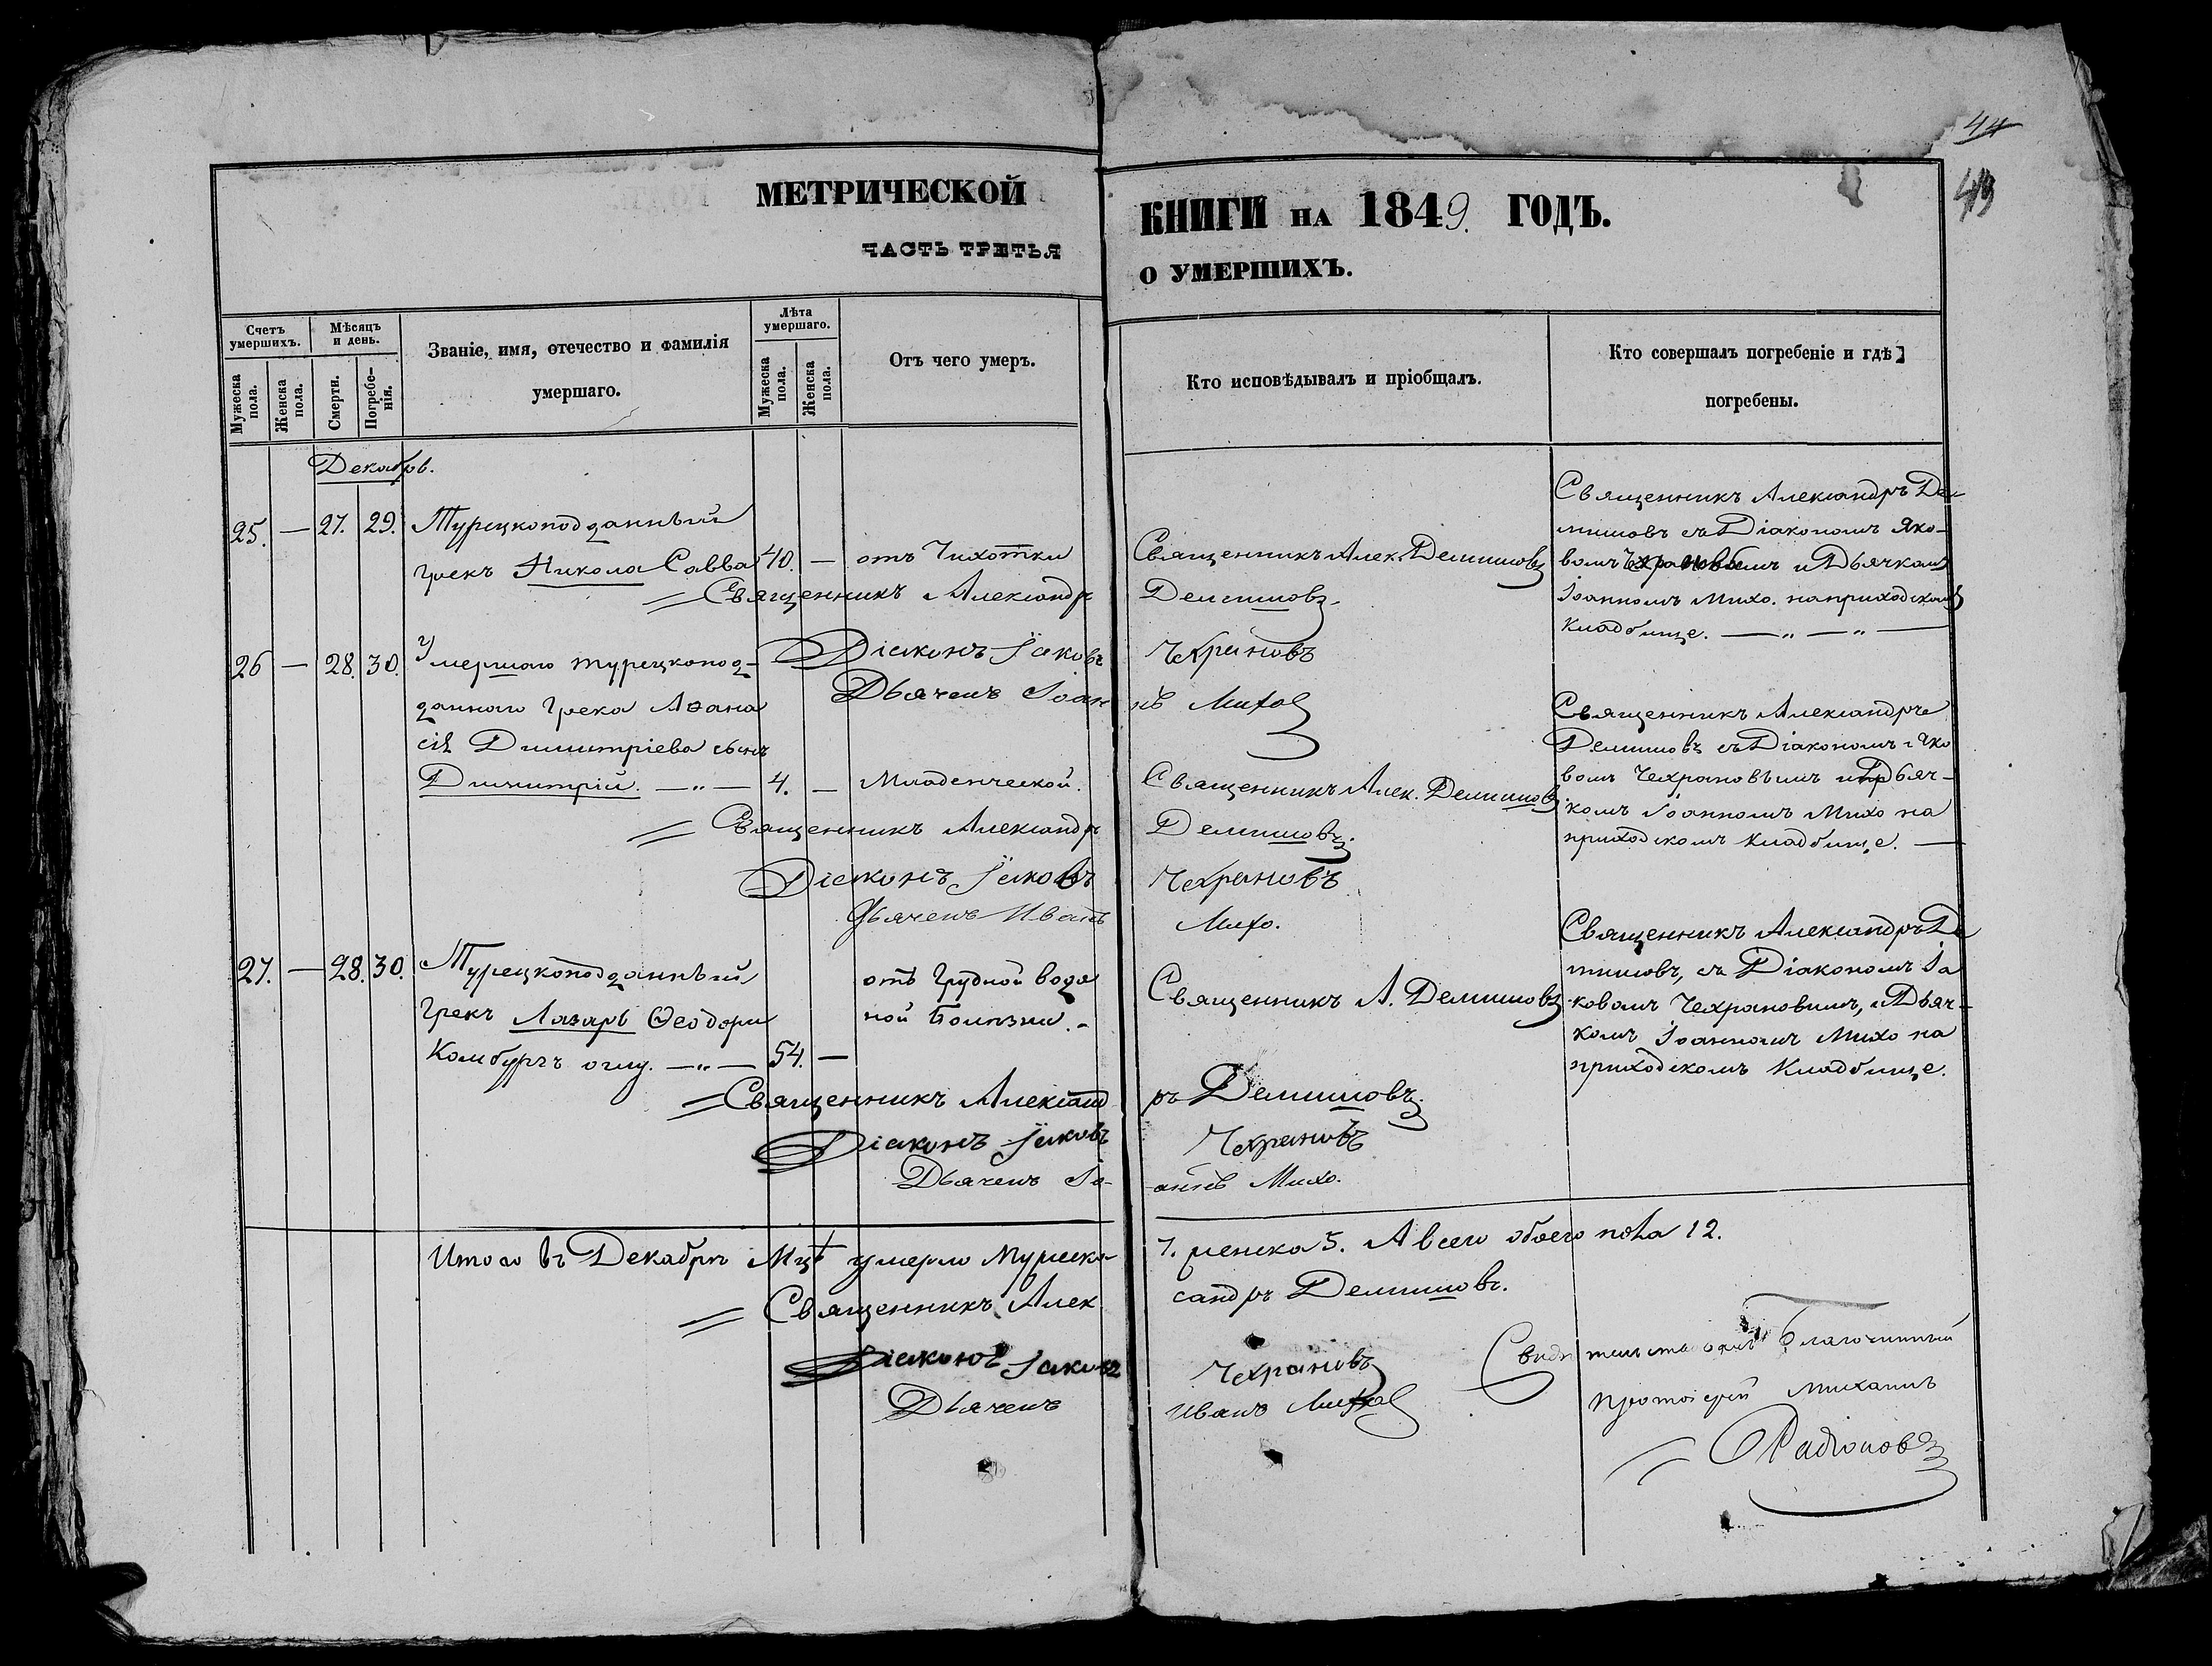 44
43
МЕТРИЧЕСКОЙ
КНИГИ НА 1849. ГОДЪ.
ЧАСТЬ ТРЕТЬЯ
О УМЕРШИХЪ.
Счетъ умершихъ.
Мѣсяцъ и день.
Званіе, имя, отечество и фамилія умершаго.
Лѣта умершаго.
Отъ чего умеръ.
Кто исповѣдывалъ и пріобщалъ.
Кто совершалъ погребеніе и гдѣ погребены.
Мужеска пола.
Женска пола.
Смерти.
Погребенія.
Мужеска пола.
Женска пола.
Декабрь.
25. — 27. 29. Турецкоподданный
грекъ Никола Савва 40. — отъ Чихотки
Священникъ Алек. Демишовъ
Священникъ Александръ Де-
мишовъ съ Діакономъ Яко-
вомъ Чехрановымъ и Дьячкомъ
Іоанномъ Михо. на приходскомъ
кладбище. — „ — „ —
Священникъ Александръ Демишовъ
Діаконъ Іаковъ Чехрановъ
Дьячекъ Іоаннъ Михо
26 — 28. 30. Умершаго турецкопод-
даннаго Грека Аѳана
сія Димитріева сынъ
Димитрій. — „ — 4. — Младенческой.
Священникъ Алек. Демишовъ
Священникъ Александръ
Демишовъ съ Діакономъ Яко
вомъ Чехрановымъ и Дьяч-
комъ Іоанномъ Михо на
приходскомъ кладбище. —
Священникъ Александръ Демишовъ.
Діаконъ Іаковъ Чехрановъ
Дьячекъ Иванъ Михо.
27. — 28. 30. Турецкоподданный
Грекъ Лазарь Ѳеодори
Комбуръ оглу. — „ — 54. —
отъ Грудной водя
ной Болѣзни. -
Священникъ А. Демишовъ
Священникъ Александръ Де
мишовъ, съ Діакономъ Іа
ковомъ Чехрановимъ, и Дьяч-
комъ Іоанномъ Михо на
приходскомъ Кладбище.
Священникъ Александръ Демишовъ.
Діаконъ Іаковъ Чехрановъ
Дьячекъ Іоаннъ Михо.
Итого въ Декабрѣ Мцѣ умерло Мужеска 7. женска 5. А всего обоего пола 12.
Священникъ Александръ Демишовъ.
Діаконъ Іаковъ Чехрановъ
Дьячекъ Иванъ Михо
Свидѣтельствовалъ Благочинный
Протоіерей Михаилъ
Радіоновъ